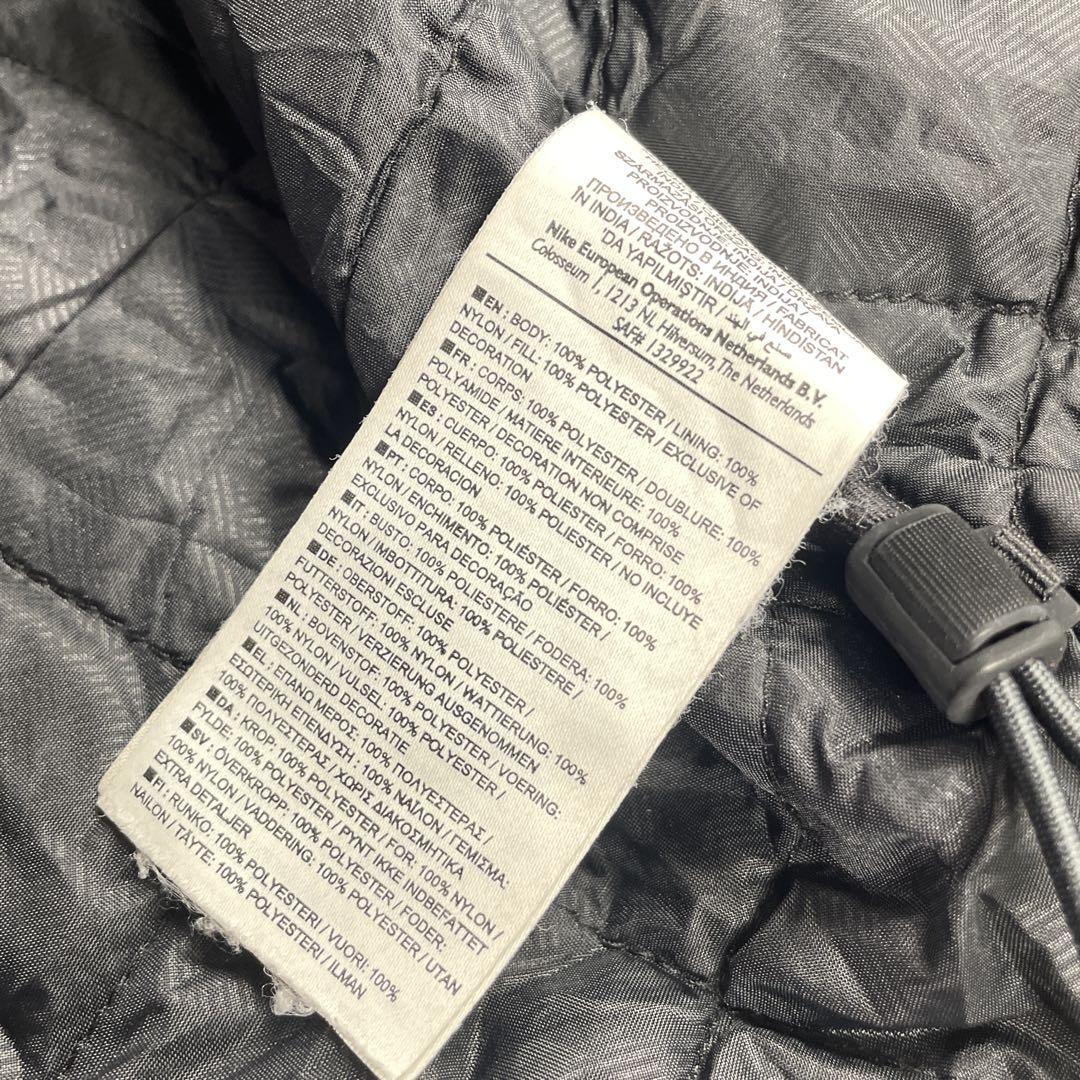 SZÁRMAZÁSI ORSZÁG: INDIA
PROIZVODNJE: INDIJA
ПРОИЗВЕДЕНО В ИНДИЯ / FABRICAT
IN INDIA / RAŽOTS: INDIJĀ / HINDISTAN
'DA YAPILMISTIR / صنع في الهند
Nike European Operations Netherlands B.V.
Colosseum 1, 1213 NL Hilversum, The Netherlands
SAF# 1329922
EN : BODY: 100% POLYESTER / LINING: 100%
NYLON / FILL: 100% POLYESTER / EXCLUSIVE OF
DECORATION
FR : CORPS: 100% POLYESTER / DOUBLURE: 100%
POLYAMIDE / MATIERE INTERIEURE: 100%
POLYESTER / DECORATION NON COMPRISE
ES : CUERPO: 100% POLIESTER / FORRO: 100%
NYLON / RELLENO: 100% POLIESTER / NO INCLUYE
LA DECORACION
PT : CORPO: 100% POLIÉSTER / FORRO: 100%
NYLON / ENCHIMENTO: 100% POLIÉSTER /
EXCLUSIVO PARA DECORAÇÃO
IT : BUSTO: 100% POLIESTERE / FODERA: 100%
NYLON / IMBOTTITURA: 100% POLIESTERE /
DECORAZIONI ESCLUSE
DE : OBERSTOFF: 100% POLYESTER /
FUTTERSTOFF: 100% NYLON / WATTIERUNG: 100%
POLYESTER / VERZIERUNG AUSGENOMMEN
NL : BOVENSTOF: 100% POLYESTER / VOERING:
100% NYLON / VULSEL: 100% POLYESTER /
UITGEZONDERD DECORATIE
EL : ΕΠΑΝΩ ΜΕΡΟΣ: 100% ΠΟΛΥΕΣΤΕΡΑΣ /
ΕΣΩΤΕΡΙΚΗ ΕΠΕΝΔΥΣΗ : 100% ΝΑΪΛΟΝ / ΓΕΜΙΣΜΑ:
100% ΠΟΛΥΕΣΤΕΡΑΣ / ΧΩΡΙΣ ΔΙΑΚΟΣΜΗΤΙΚΑ
DA : KROP: 100% POLYESTER / FOR: 100% NYLON /
FYLDE: 100% POLYESTER / PYNT IKKE INDBEFATTET
SV : ÖVERKROPP: 100% POLYESTER / FODER:
100% NYLON / VADDERING: 100% POLYESTER / UTAN
EXTRA DETALJER
FI : RUNKO: 100% POLYESTERI / VUORI: 100%
NAILON / TÄYTE: 100% POLYESTERI / ILMAN